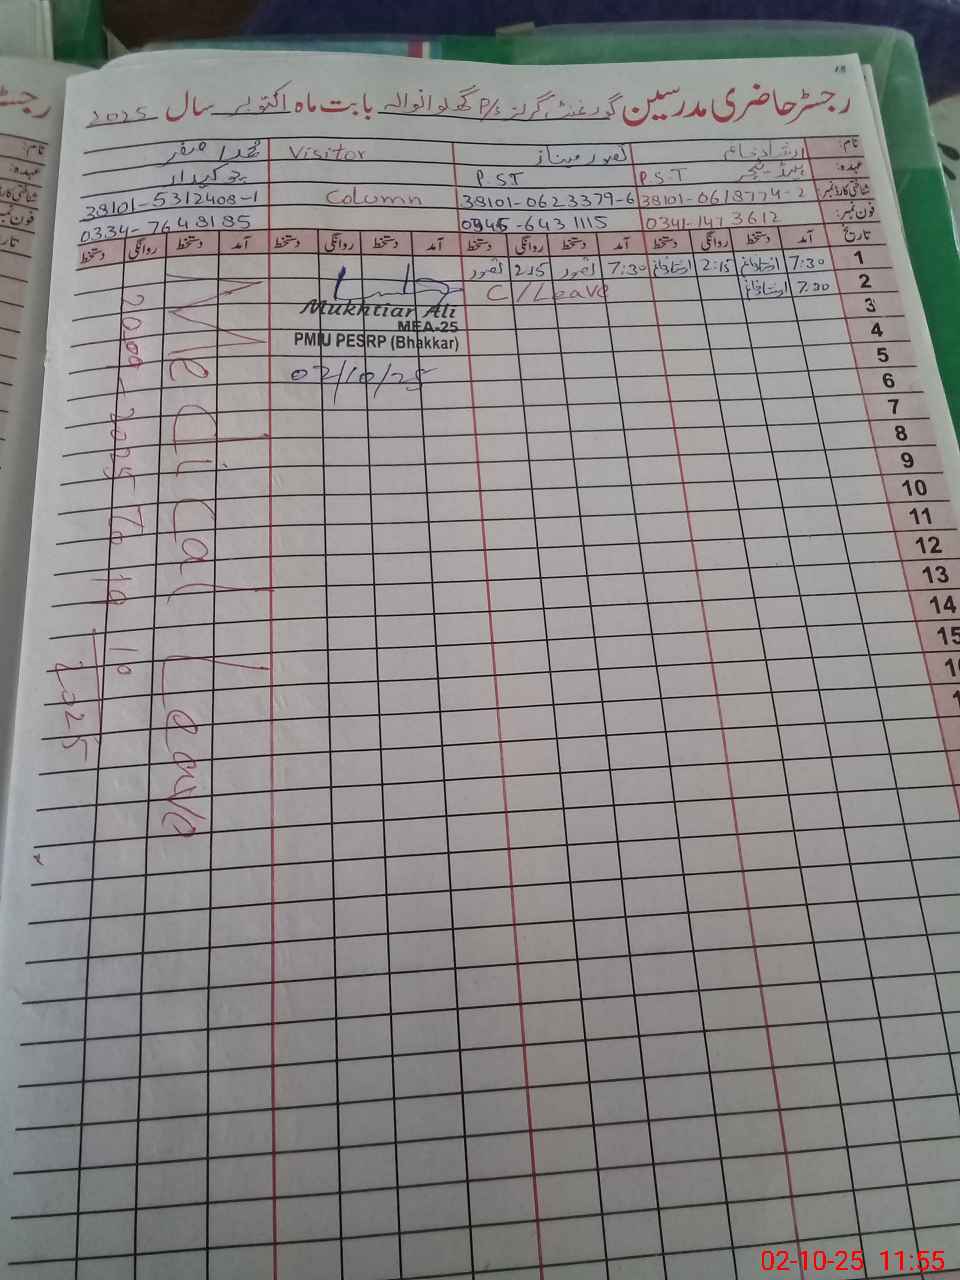 رجسٹر حاضری مدرسین گورنمنٹ گرلز P/S گھلوانوالہ بابت ماہ اکتوبر سال 2025
نام: ارشاد خانم تصور مہناز Visitor
عہدہ: ہیڈ ٹیچر P.S.T P.S.T چوکیدار
شناختی کارڈ نمبر: 38101-0618774-2 38101-0623379-6 Column 38101-5312408-1
فون نمبر: 0341-1473612 0345-6431115 0334-7648185
تاریخ آمد دستخط روانگی دستخط آمد دستخط روانگی دستخط آمد دستخط روانگی دستخط آمد دستخط روانگی دستخط
1 7:30 ارشاد خانم 2:15 ارشاد خانم 7:30 تصور 2:15 تصور
2 7:30 ارشاد خانم C/Leave
3
4
5
6
7
8
9
10
11
12
13
14
15
Mukhtiar Ali
MEA-25
PMIU PESRP (Bhakkar)
02/10/25
Medical Leave
20-09-2025 To 19 10
2025
02-10-25 11:55